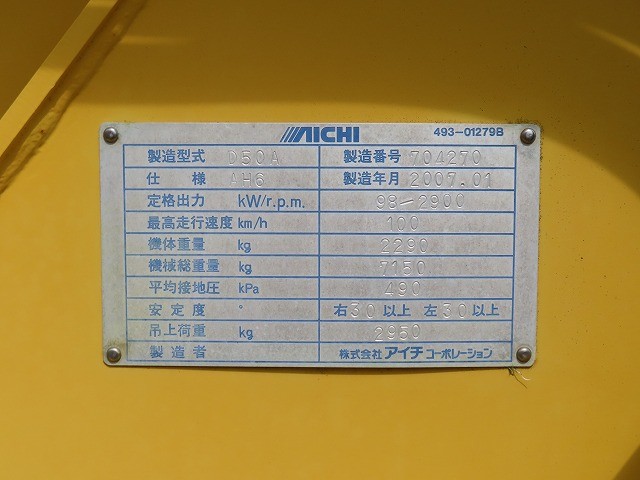 AICHI 493-01279B
製造型式 D50A 製造番号 704270
仕様 AH6 製造年月 2007.01
定格出力 kW/r.p.m. 98-2900
最高走行速度 km/h 100
機体重量 kg 2290
機械総重量 kg 7150
平均接地圧 kPa 490
安定度 ° 右30以上 左30以上
吊上荷重 kg 2950
製造者 株式会社アイチコーポレーション